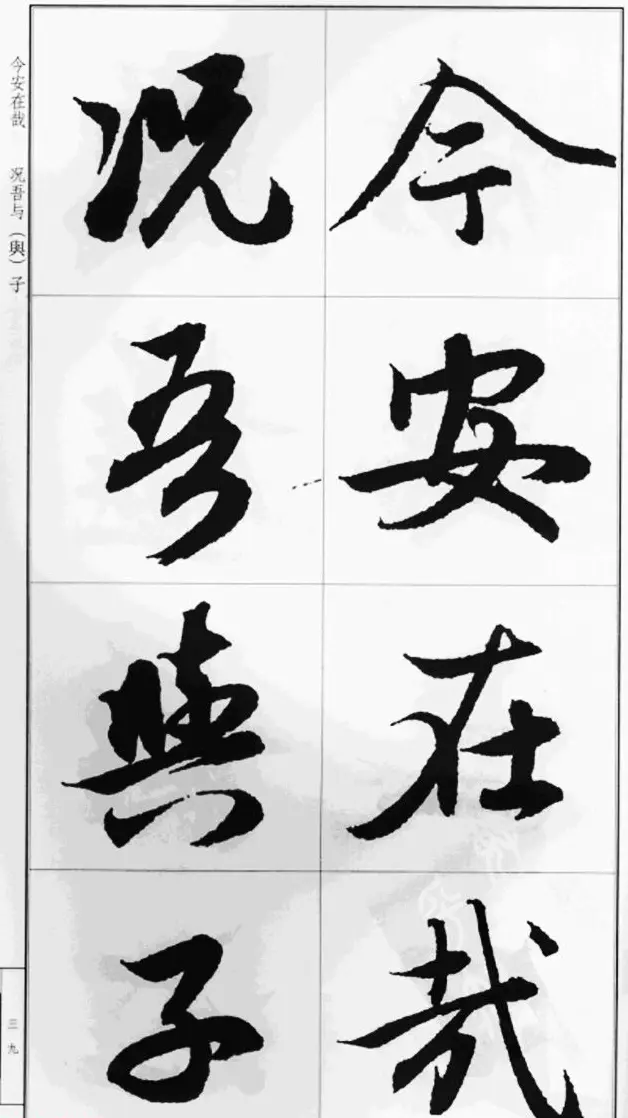 今安在哉
况吾與子
今安在哉 况吾与（與）子
三九